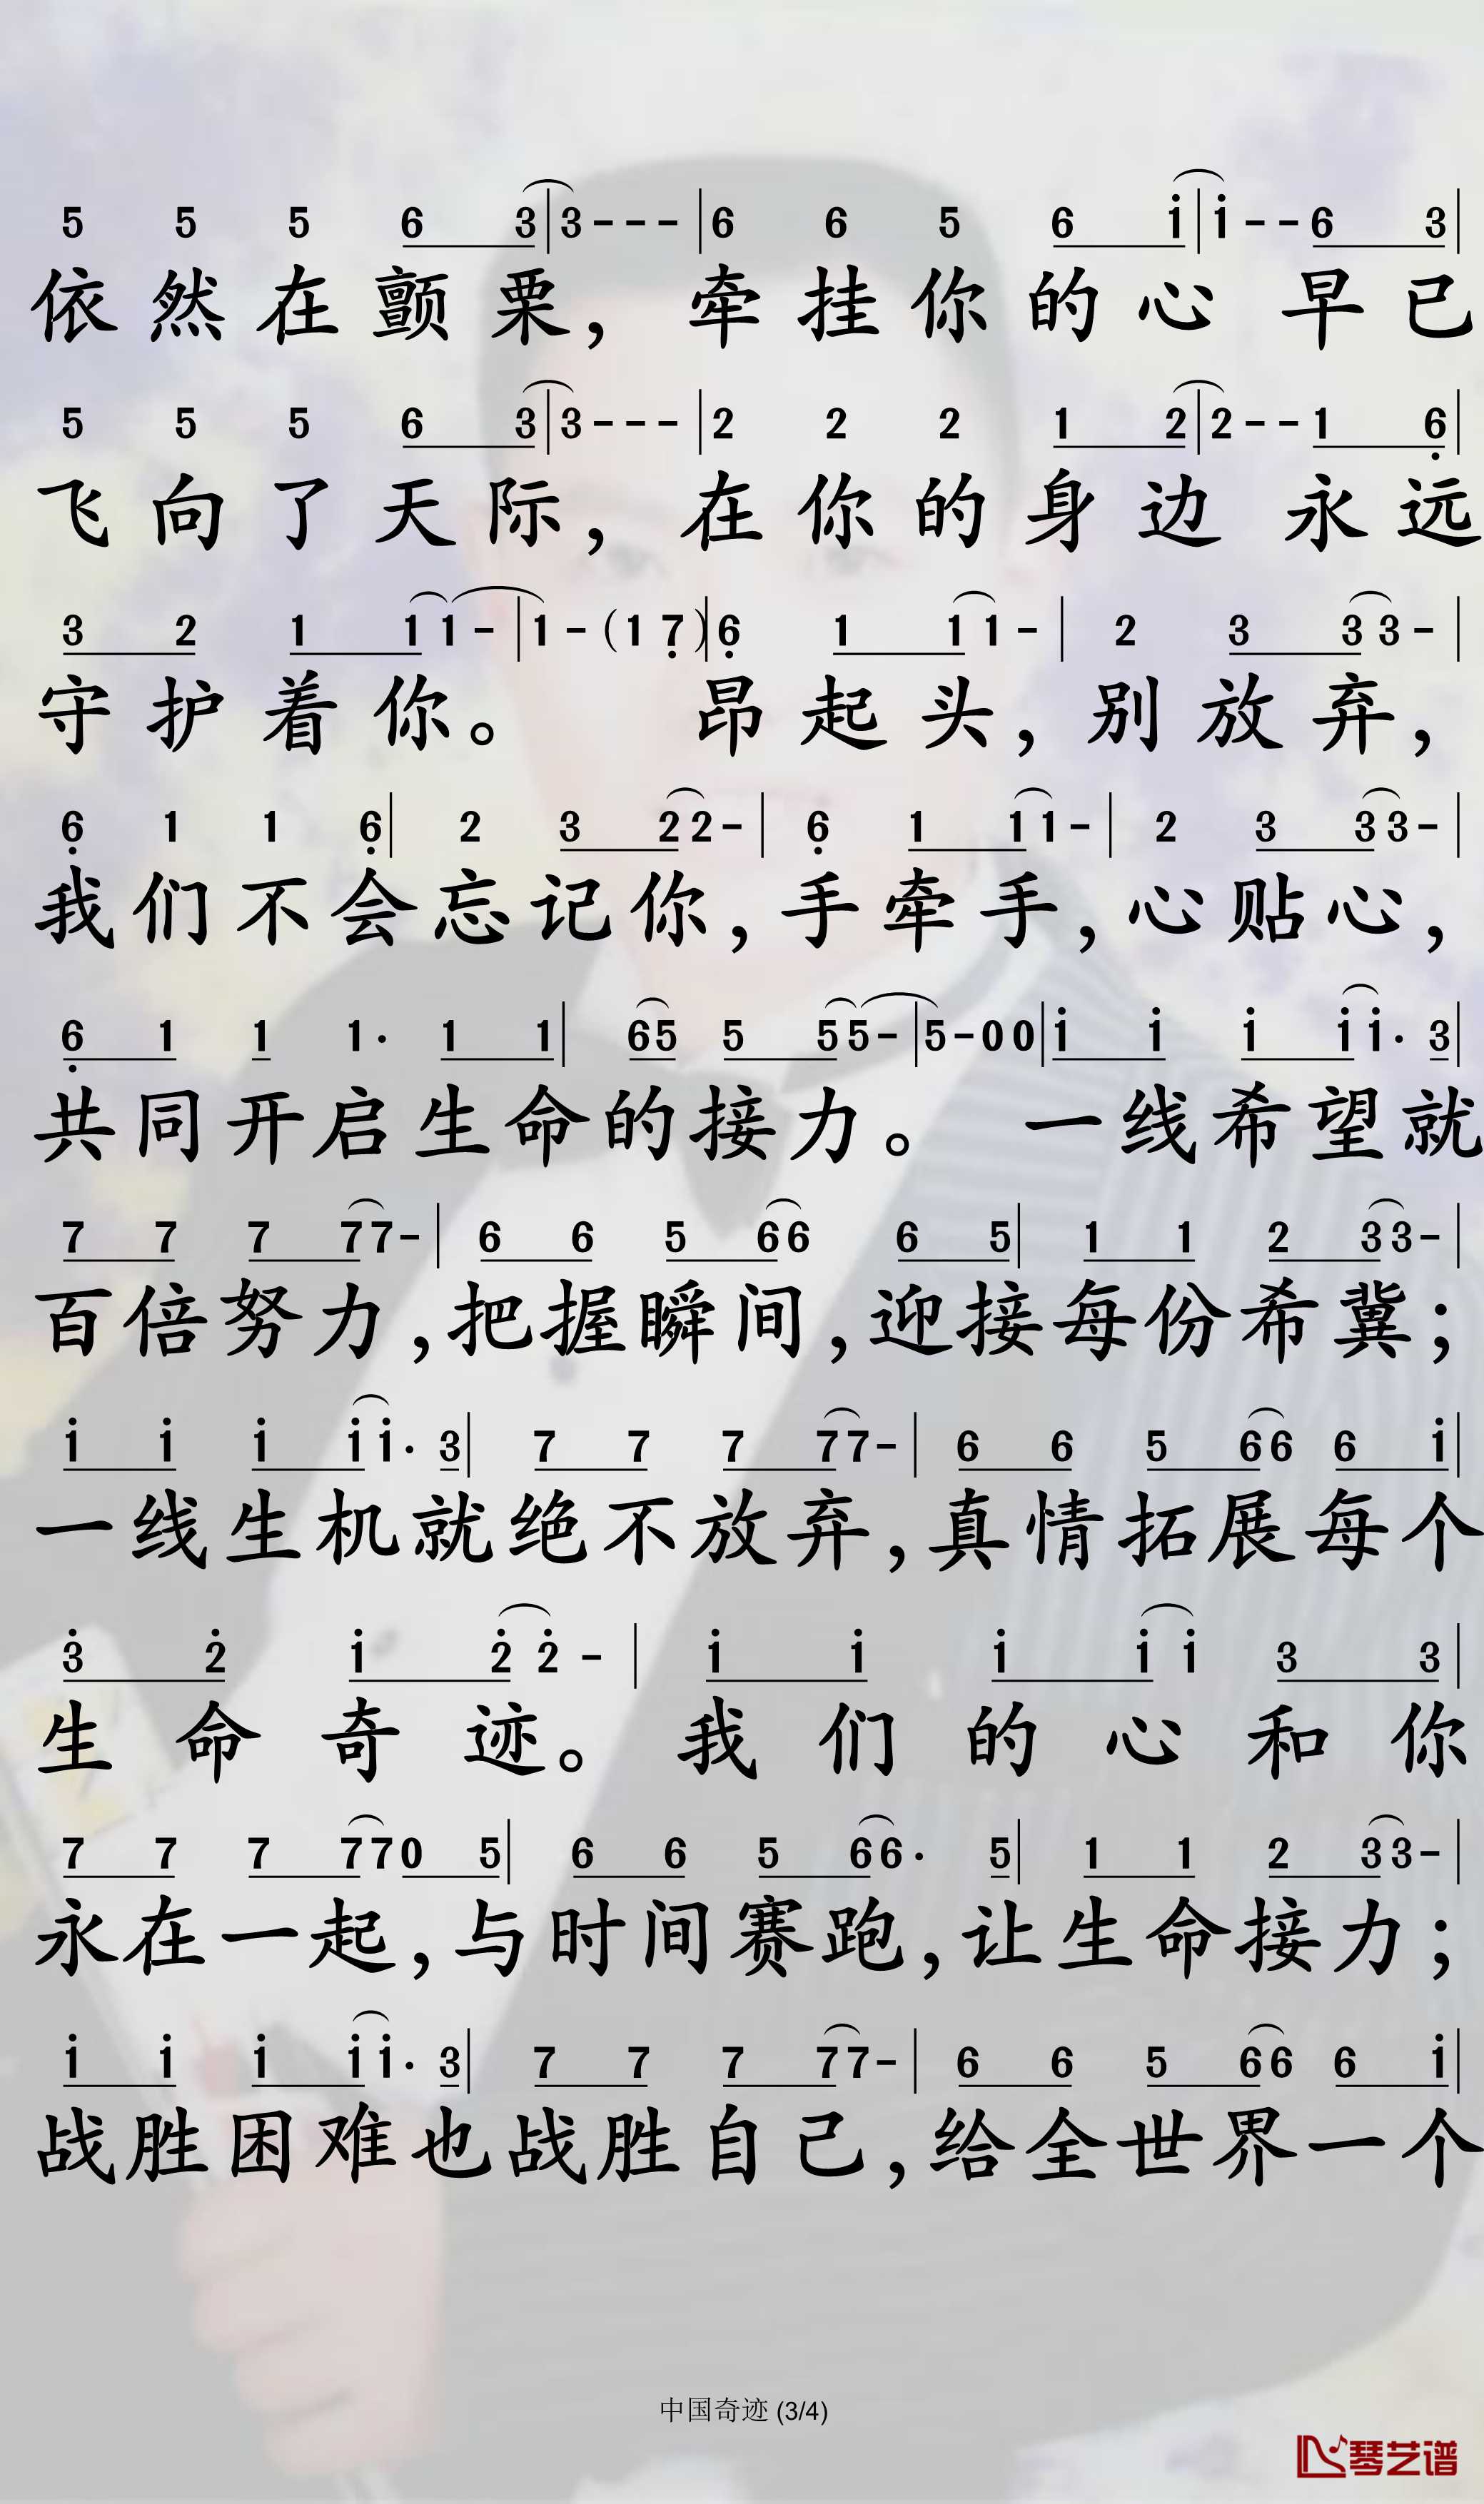 5 5 5 6 3|3--- |6 6 5 6 i|i--6 3|
依然在颤栗，牵挂你的心 早已
5 5 5 6 3|3--- |2 2 2 1 2|2--1 6|
飞向了天际，在你的身边 永远
3 2 1 11-|1-(1 7)|6 1 11-| 2 3 33-|
守护着你。 昂起头，别放弃，
6 1 1 6| 2 3 22-| 6 1 11-| 2 3 33-|
我们不会忘记你，手牵手，心贴心，
6 1 1 1· 1 1| 65 5 55-|5-00|i i i ii· 3|
共同开启生命的接力。 一线希望就
7 7 7 77-| 6 6 5 66 6 5| 1 1 2 33-|
百倍努力，把握瞬间，迎接每份希冀；
i i i ii· 3| 7 7 7 77-| 6 6 5 66 6 i|
一线生机就绝不放弃，真情拓展每个
3 2 i 22-| i i i ii 3 3|
生命奇迹。我们的心和你
7 7 7 770 5| 6 6 5 66· 5| 1 1 2 33-|
永在一起，与时间赛跑，让生命接力；
i i i ii· 3| 7 7 7 77-| 6 6 5 66 6 i|
战胜困难也战胜自己，给全世界一个
中国奇迹 (3/4)
琴艺谱